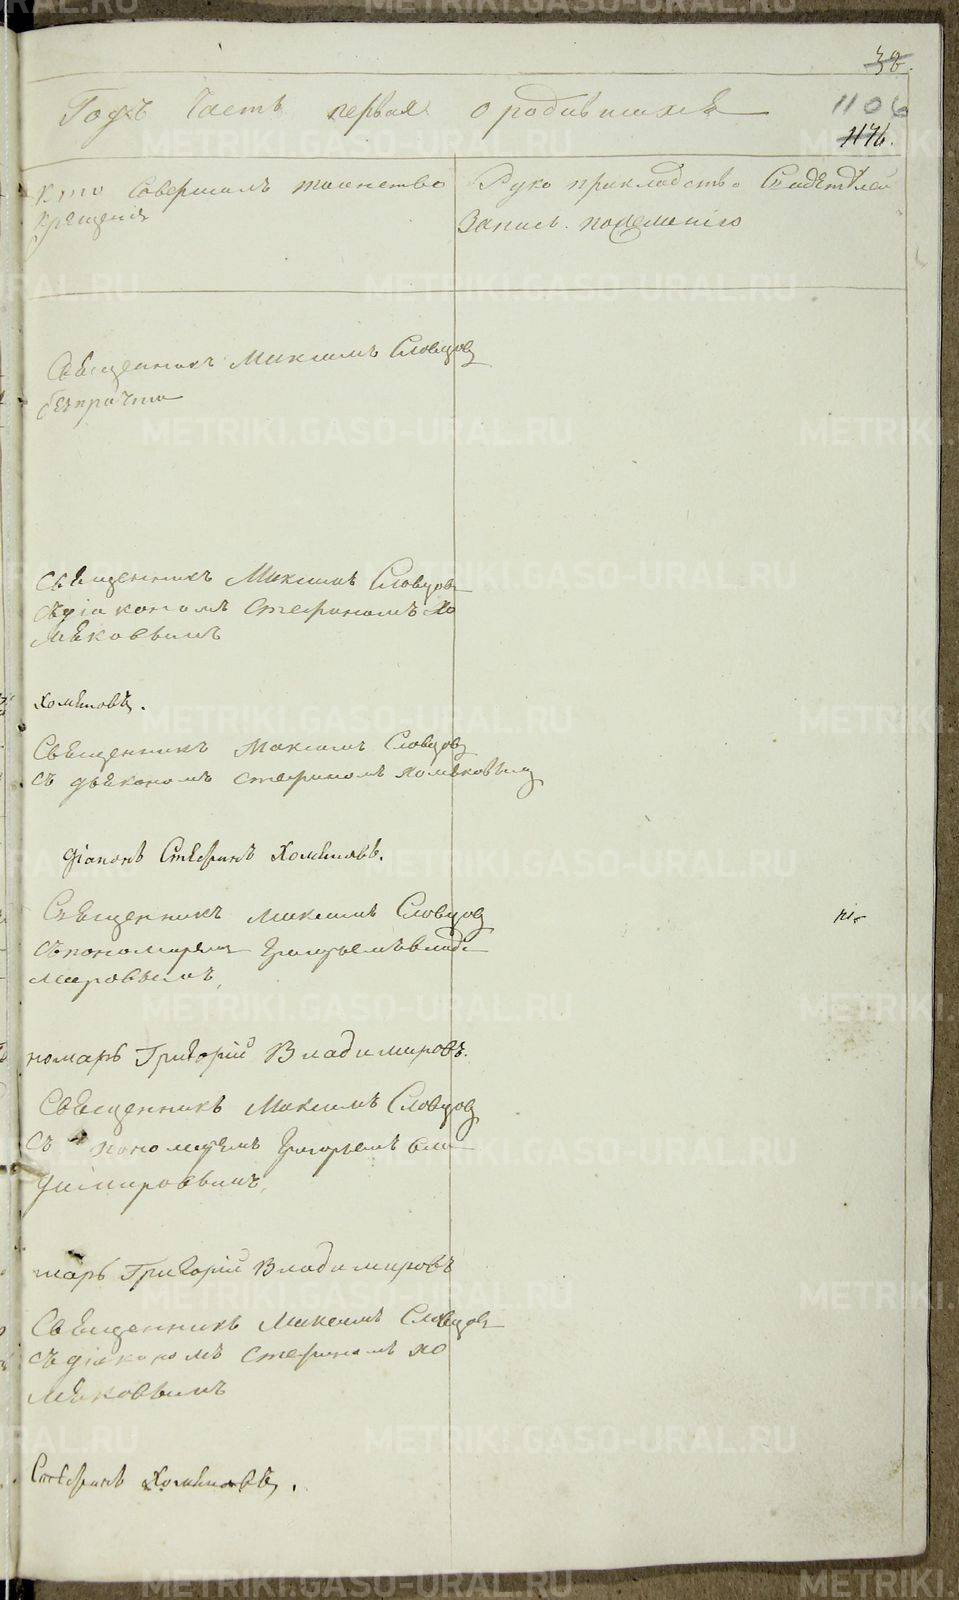 38.
Годъ Часть первая о родившихся
1106
1176.
Кто Совершалъ таинство Руко прикладство Свидѣтелей
Крещенія Запись. пожеланію
Священникъ Максимъ Словцовъ
безпричта
Священникъ Максимъ Словцовъ
съдіакономъ Стефаномъ Хо
мѣковымъ
Хомяковъ.
Священникъ Максимъ Словцовъ
съ дьякономъ Стефаномъ Хомяковымъ
Діаконъ Стефанъ Хомяковъ.
Священникъ Максимъ Словцовъ
съпономаремъ Григорьемъ Влади
мировымъ,
номарь Григорій Владимировъ.
Священникъ Максимъ Словцовъ
съ пономаремъ Григорьемъ Вла
димировымъ,
марь Григорій Владимировъ
Священникъ Максимъ Словцовъ
съдіакономъ Стефаномъ Хо
мѣковымъ
Стефанъ Хомяковъ.
METRIKI.GASO-URAL.RU